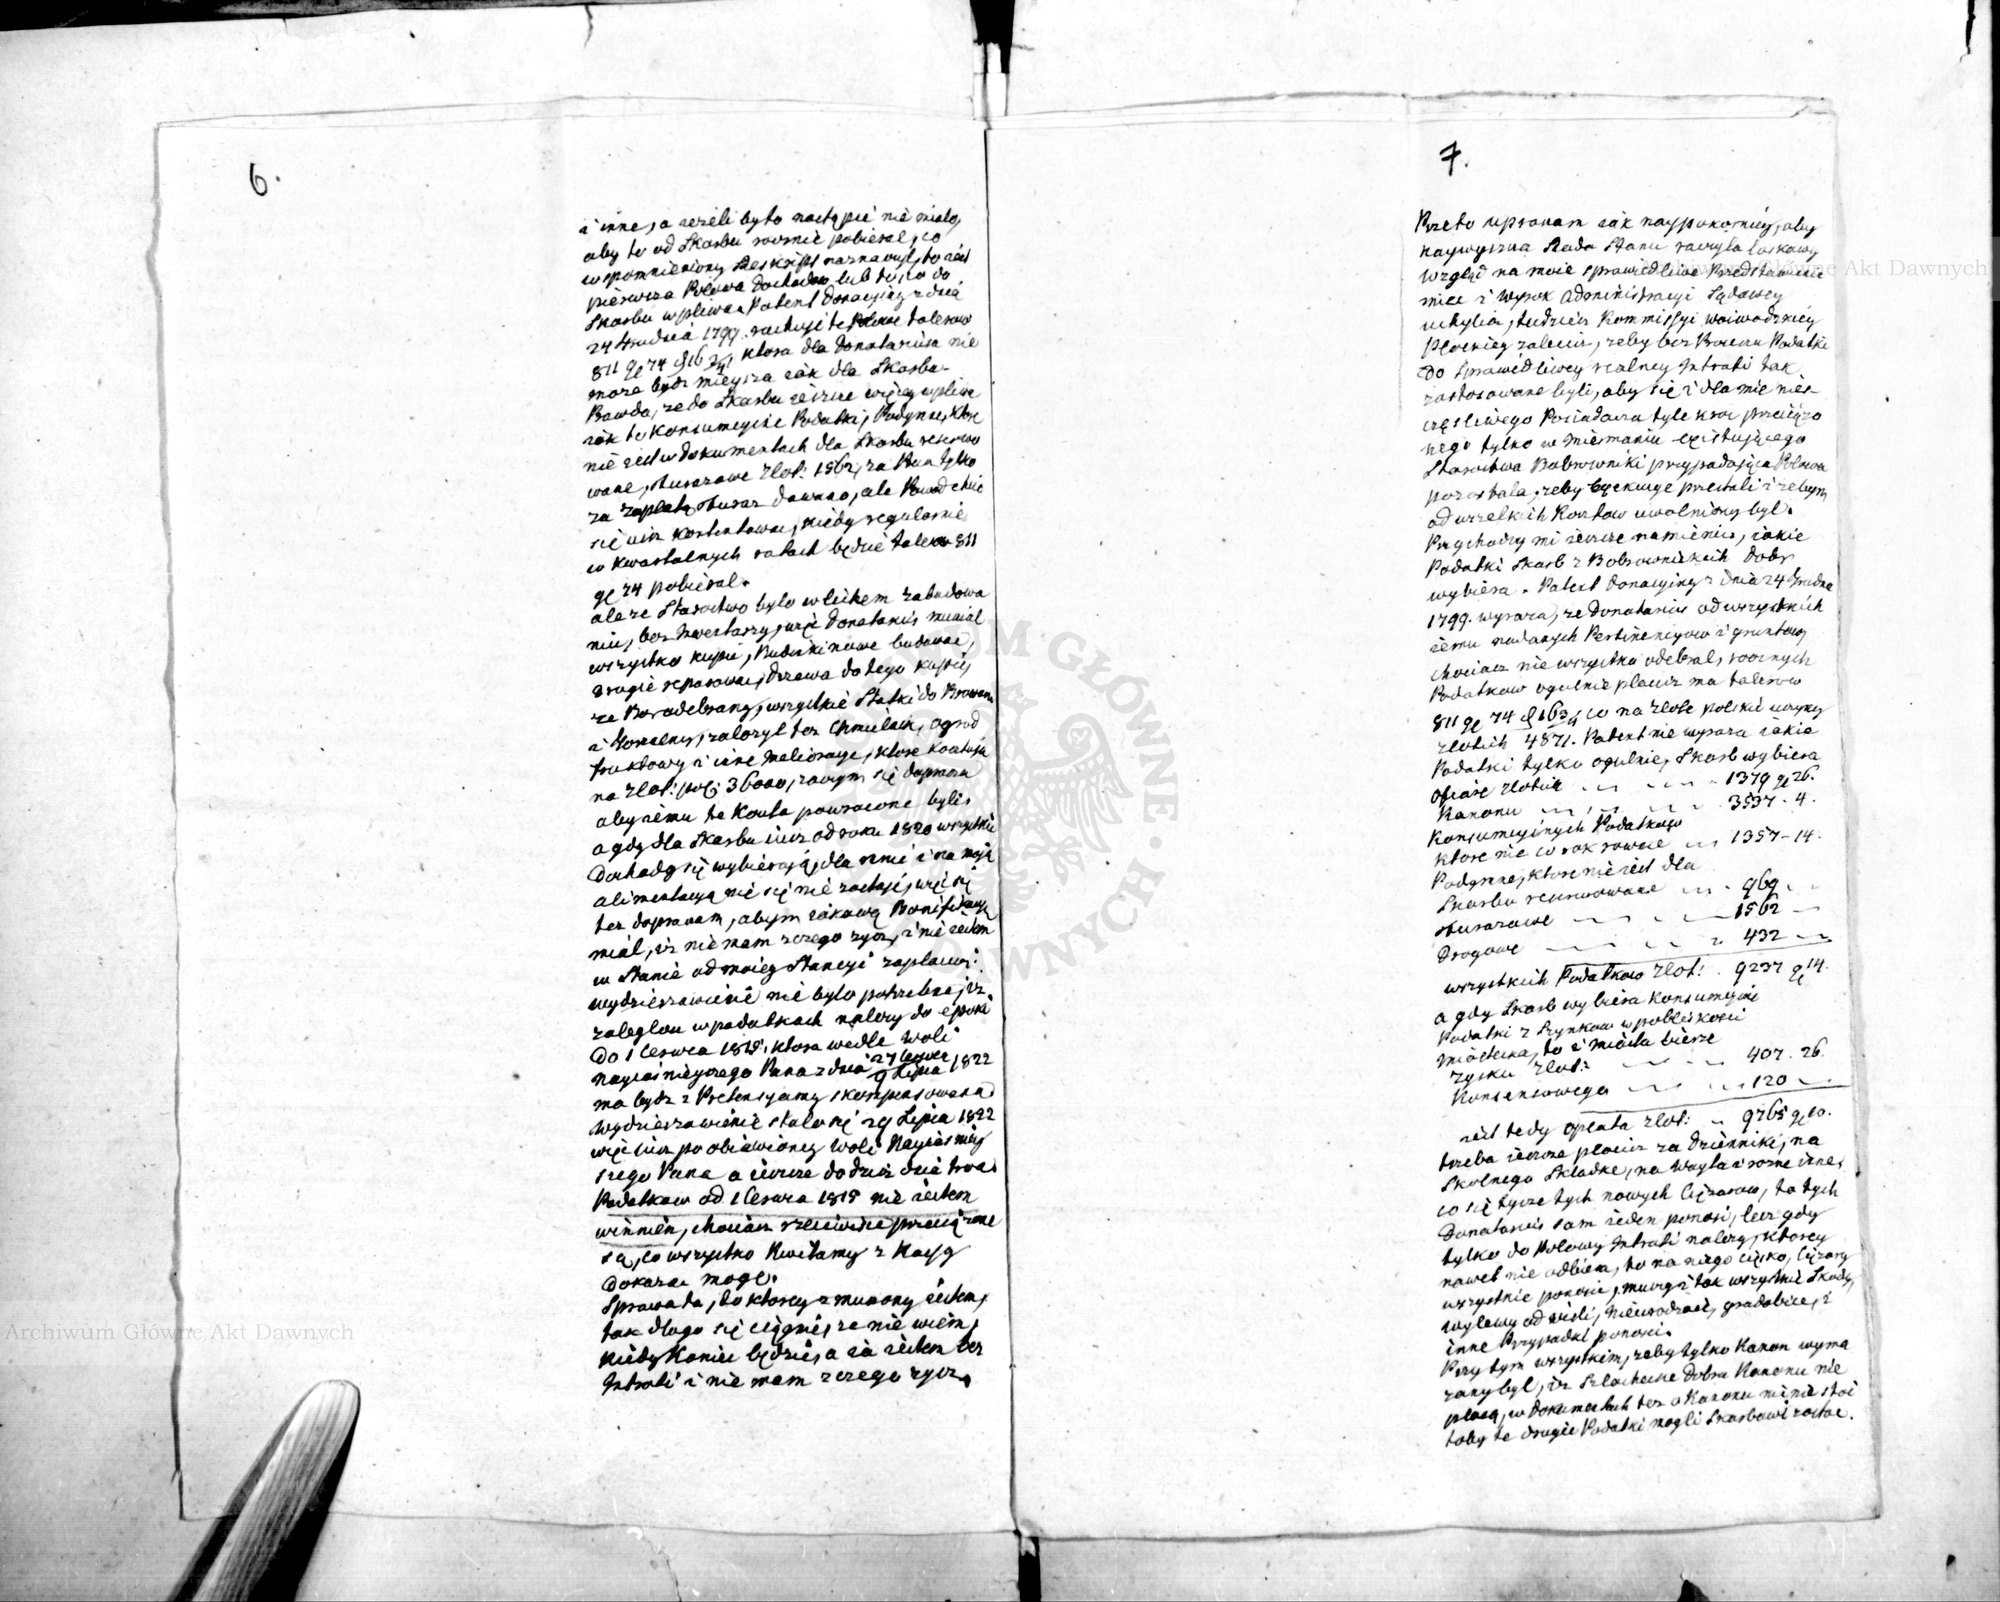 6.
i inne, a jezeli by to nastąpić nie miało,
aby to od Skarbu rocznie pobierał, co
wspomniony Reskript naznaczył, to jest
pierwsza Połowa Dochodow lub to, co do
Skarbu wpływa Patent Donacyiny z dnia
24 Grudnia 1799. rachuje te Połowe talerow
811 gl 74 która dla Donatariusa nie
może bydz mieysza jak dla Skarbu.
Prawda, ze do Skarbu jeszcze więcy wpliwa
jak te Konsumcyine Podatki, Podymne, ktore
nie jest w Dokumentach dla Skarbu reserwo
wane, Złot: 1562, za Pan tylko
za zaplatą dawano, ale
się kontentować, kiedy regularnie
w kwartalnych ratach będzie talerow 811
gl 74 pobierał.
ale ze Starostwo było w lichem zabudowa
niu, bez Inwentarzy, więc Donatarius musiał
wszystko kupić, Budinki nowe budować,
drugie reparować, Drzewa do tego kupić,
wszystkie Statki do Browaru
i Gorzelny, założył tez Chmielnik, ogrod
fruktowy i inne Melioracye, ktore kosztują
na Złot: pol: 36000, zaczym się doprasza
aby jemu te Koszta powrocone byli,
a gdy dla Skarbu juz od roku 1820 wszystkie
Dochody się wybierają, dla mnie i na moją
alimentacyą nic się nie zostaje, więc się
tez dopraszam, abym jakową Bonifikacyą
miał, iz nie mam z czego zyć, i nie jestem
w Stanie od moiey Stancyi zapłacić.
wydzierzawienie nie było potrzebne, iz
zaległou w podatkach nalezy do epoki
do 1 Czerwca 1818, ktora wedle Woli
Nayiasnieyszego Pana z dnia 27 Czerwca 1822
9 Lipca
ma bydz z Pretensyamy skompensowana
wydzierzawienie stało się 29 Lipca 1822
więc juz po obiawioney Woli Nayiasniey
szego Pana a jeszcze do dziś dnia trwa.
Podatkow od 1 Czerwca 1818 nie jestem
winnien, chociasz rzeciwiscie przeciązone
są, co wszystko Kwitamy z Kassy
dokazac mogę.
Sprawa ta, do ktorey zmuszony jestem,
tak długo się ciągnie, ze nie wiem,
kiedy koniec będzie, a ja jestem bez
Intrati i nie mam z czego zyć.
7.
Przeto upraszam jak naypokorniey, aby
naywyzsza Rada Stanu raczyła łaskawy
wzgląd na moie sprawiedliwe Przedstawienie
miec i wyrok administracyi Sądowey
uchylić, tudziesz Kommissyi woiwodzkiey
Płockiey zalecić, zeby bez Procesu Podatki
do sprawiedliwey realney Intrati tak
zastosowane byli, aby się i dla mnie nies-
częsliwego Posiadacza tyle kroc przeciązo
nego tylko w mniemaniu existującego
Starostwa Bobrowniki przypadająca Połowa
pozostala, zeby Exekucye przestali i zebym
od wszelkich Kosztow uwolniony był.
Przychodzy mi jeszcze namienic, jakie
Podatki Skarb z Bobrownickich Dobr
wybiera. Patent Donacyiny z dnia 24 Grudnia
1799. wyraza, ze Donatarius od wszystkich
jemu nadanych Pertinencyow i gruntow,
chociasz nie wszystko odebrał, rocznych
Podatkow ogulnie placic ma talerow
811 gl 74 co na złote polskie
złotich 4871. Patent nie wyraza jakie
Podatki tylko ogulnie, Skarb wybiera
Ofiare złotich 1379 gl 26.
Kanonu 3537. 4.
Konsumcyinych Podatkow
ktore nie co rok rowne 1357-14.
Podymne, ktore nie jest dla
Skarbu reserwowane 969.
1562
Drogowe 432
wszystkich Podatkow Złot: 9237 gl 14.
a gdy Skarb wybiera Konsumcyine
Podatki z Szynkow w pobliskosci
miastecka, to i miasta biersze
zysku złot: 407. 26.
Konsensowego 120
jest tedy opłata złot: 9765 gl 10.
trzeba jeszcze placic za Dzienniki, na
Skolnego Składke, na woyta i rozne inne,
co się tycze tych nowych Ciężarow, to tych
Donatarius sam jeden ponosi, lecz gdy
tylko do Połowy Intrati nalezy, ktorey
nawet nie odbiera, to na niego cięsko, Ciężary
wszystkie ponosić, musy i tak wszystkie Skody,
wylewy od wisli, nieurodzaie, gradobicie, i
inne Przypadki ponosić.
Przy tym wszystkim, zeby tylko Kanon wyma
zany był, iz Szlacheckie Dobra Kanonu nie
płacą, w Dokumentach tez o Kanonu nic nie stoi
toby te drugie Podatki mogli Skarbowi zostac.
Archiwum Główne Akt Dawnych